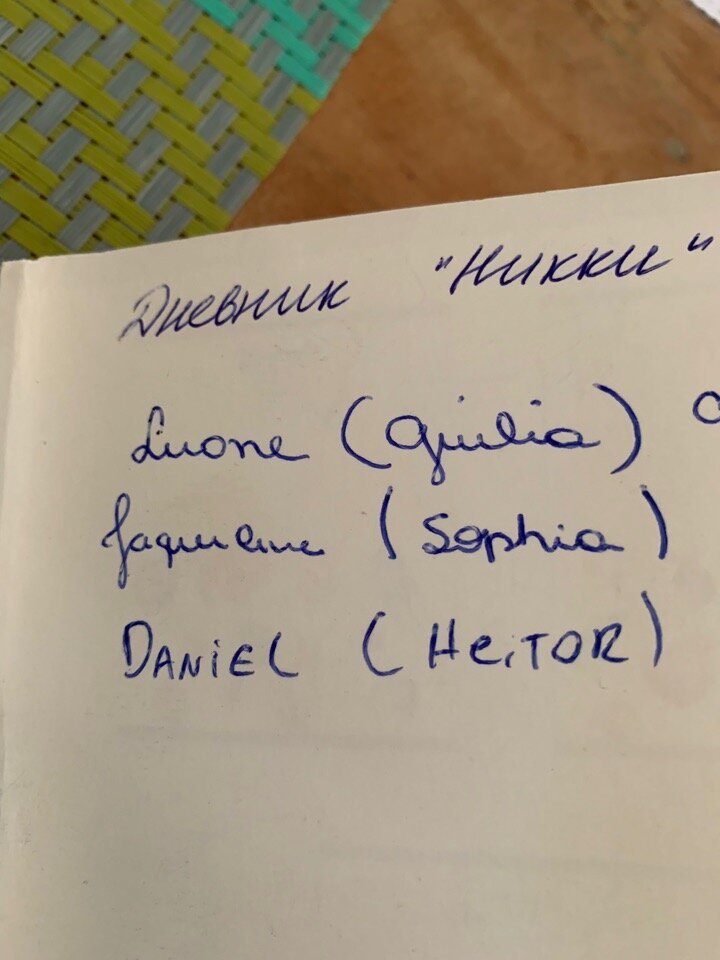 Дневник "Никки"
Luone (Giulia)
Jaqueline (Sophia)
DANiEL (HeiTOR)